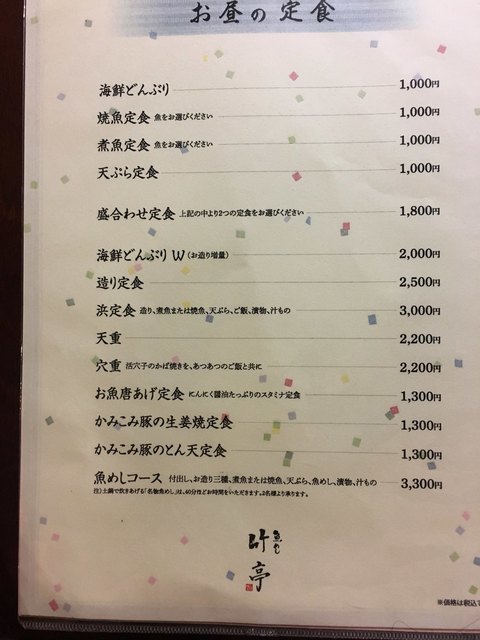 お昼の定食
海鮮どんぶり 1,000円
焼魚定食 魚をお選びください 1,000円
煮魚定食 魚をお選びください 1,000円
天ぷら定食 1,000円
盛合わせ定食 上記の中より2つの定食をお選びください 1,800円
海鮮どんぶりW(お造り増量) 2,000円
造り定食 2,500円
浜定食 造り、煮魚または焼魚、天ぷら、ご飯、漬物、汁もの 3,000円
天重 2,200円
穴重 活穴子のかば焼きを、あつあつのご飯と共に 2,200円
お魚唐あげ定食 にんにく醤油たっぷりのスタミナ定食 1,300円
かみこみ豚の生姜焼定食 1,300円
かみこみ豚のとん天定食 1,300円
魚めしコース 付出し、お造り三種、煮魚または焼魚、天ぷら、魚めし、漬物、汁もの 3,300円
注)土鍋で炊きあげる「名物魚めし」は、40分ほどお時間をいただきます。2名様より承ります。
魚めし
亭
※価格は税込で